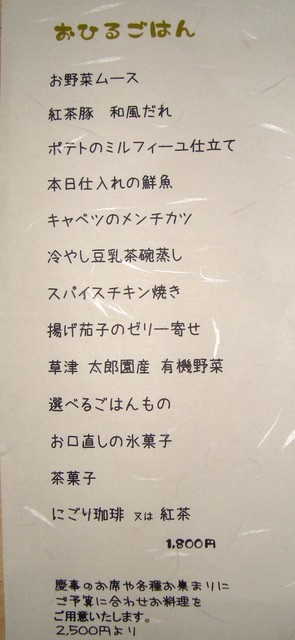 おひるごはん
お野菜ムース
紅茶豚　和風だれ
ポテトのミルフィーユ仕立て
本日仕入れの鮮魚
キャベツのメンチカツ
冷やし豆乳茶碗蒸し
スパイスチキン焼き
揚げ茄子のゼリー寄せ
草津 太郎園産 有機野菜
選べるごはんもの
お口直しの氷菓子
茶菓子
にごり珈琲 又は 紅茶
1,800円
慶事のお席や各種お集まりに
ご予算に合わせお料理を
ご用意いたします。
2,500円より